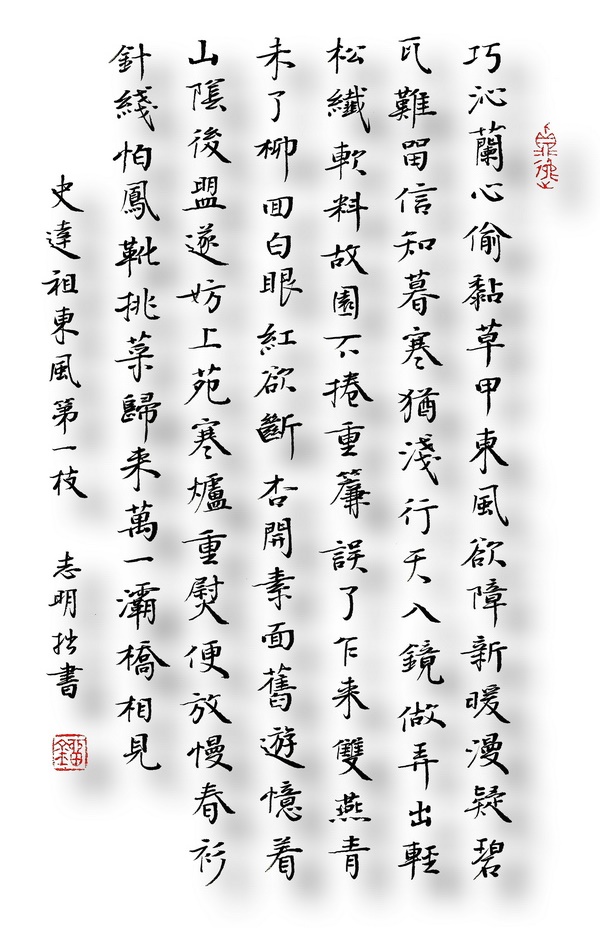 巧沁蘭心偷黏草甲東風欲障新暖漫疑碧
瓦難留信知暮寒猶淺行天入鏡做弄出輕
松纖軟料故園不捲重簾誤了乍来雙燕青
未了柳回白眼紅欲斷杏開素面舊遊憶着
山陰後盟遂妨上苑寒爐重熨便放慢春衫
針綫怕鳳靴挑菜歸来萬一灞橋相見
史達祖東風第一枝 志明拙書